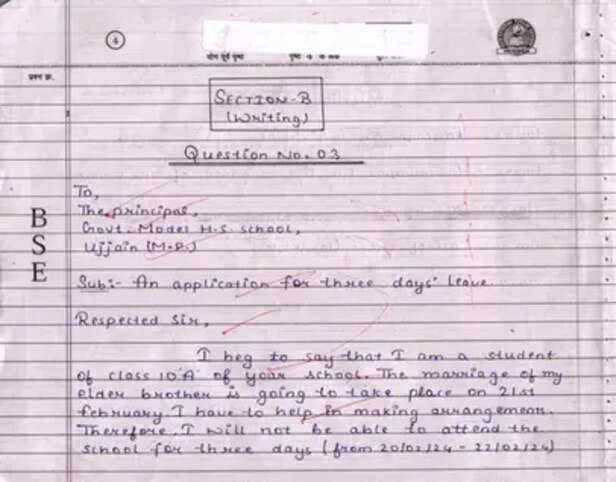 4
योग पूर्व पृष्ठ
प्रश्न क्र.
SECTION-B
(Writing)
Question No. 03
To,
The principal,
Govt. Model H.S. School,
Ujjain (M.P.)
Sub:- An application for three days' leave
Respected Sir,
I beg to say that I am a student
of class 10'A' of your school. The marriage of my
elder brother is going to take place on 21st
february. I have to help in making arrangement.
Therefore, I will not be able to attend the
school for three days (from 20/02/24 - 22/02/24)
B
S
E